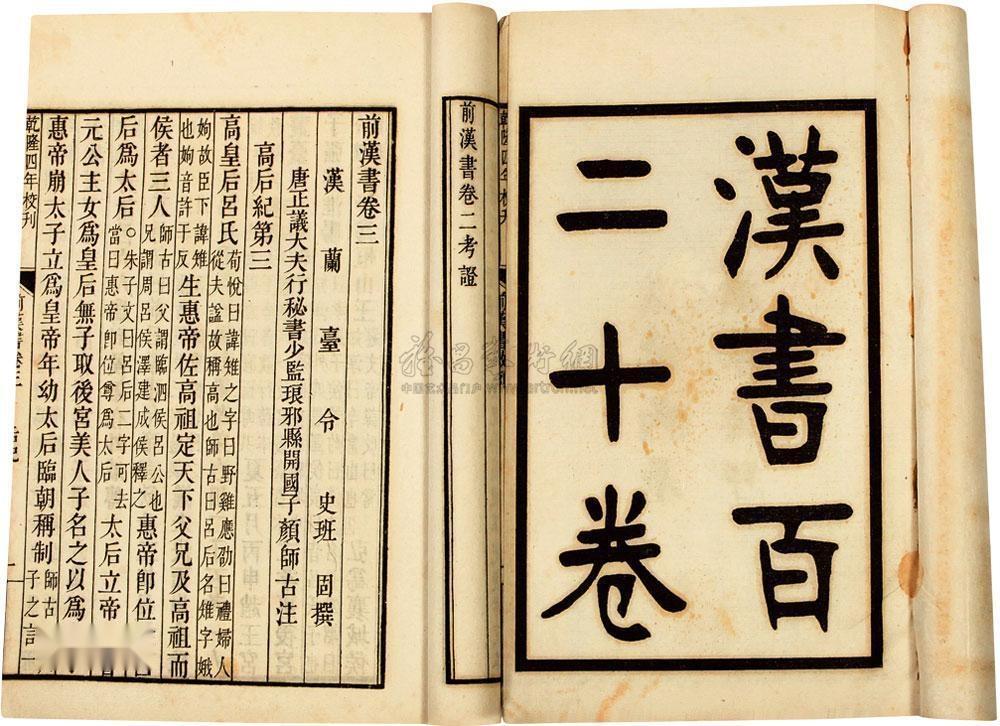 漢書百
二十卷
前漢書卷二考證
前漢書卷三
漢蘭臺令史班固撰
唐正議大夫行秘書少監琅邪縣開國子顏師古注
高后紀第三
高皇后呂氏荀悅曰諱雉之字曰野雞應劭曰禮婦人從夫諡故稱高也師古曰呂后名雉字娥
姁故臣下諱雉也姁音許于反生惠帝佐高祖定天下父兄及高祖而
侯者三人師古曰父謂臨泗侯呂公也兄謂周呂侯澤建成侯釋之惠帝卽位
后爲太后○朱子文曰呂后二字可去當曰惠帝卽位尊爲太后太后立帝
元公主女爲皇后無子取後宮美人子名之以爲
惠帝崩太子立爲皇帝年幼太后臨朝稱制師古
子之言一
乾隆四年校刊